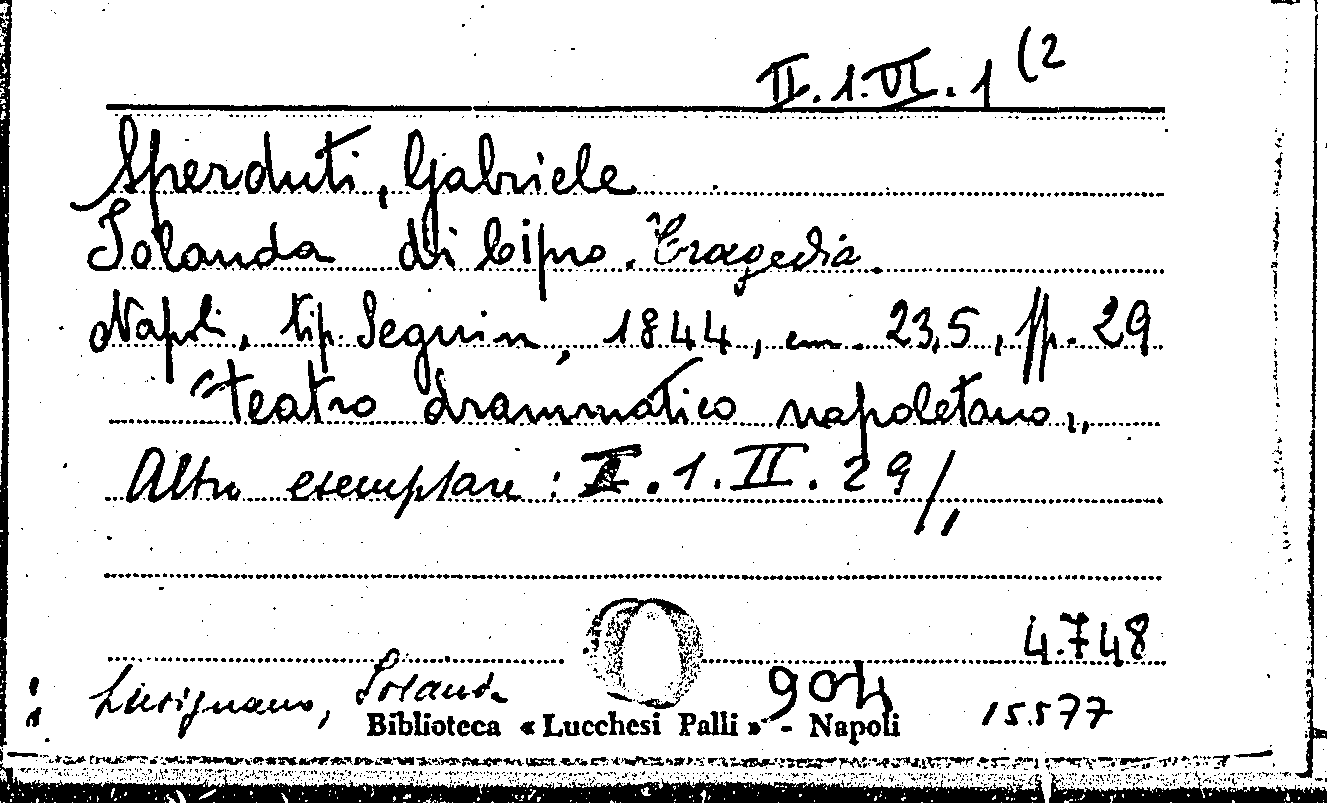 II.1.VI.1 (2
Sperduti, Gabriele
Iolanda di Cipro. Tragedia.
Napoli, tip. Seguin, 1844, cm. 23,5, pp. 29
"Teatro drammatico napoletano"
Altro esemplare: II.1.II.29/,
4.748
Lusignano, Iolanda
904
15.577
Biblioteca « Lucchesi Palli » - Napoli